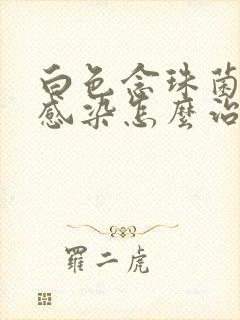 白色念珠菌
感染怎麼治
羅二虎